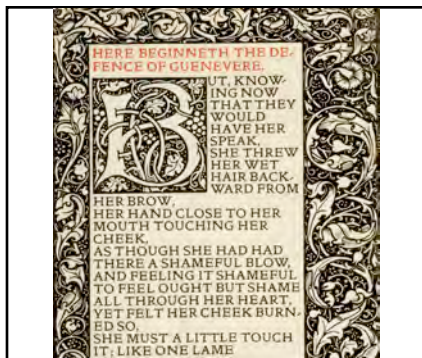 HERE BEGINNETH THE DE-
FENCE OF GUENEVERE.
BUT, KNOW-
ING NOW
THAT THEY
WOULD
HAVE HER
SPEAK,
SHE THREW
HER WET
HAIR BACK-
WARD FROM
HER BROW,
HER HAND CLOSE TO HER
MOUTH TOUCHING HER
CHEEK,
AS THOUGH SHE HAD HAD
THERE A SHAMEFUL BLOW,
AND FEELING IT SHAMEFUL
TO FEEL OUGHT BUT SHAME
ALL THROUGH HER HEART,
YET FELT HER CHEEK BURN-
ED SO,
SHE MUST A LITTLE TOUCH
IT; LIKE ONE LAME